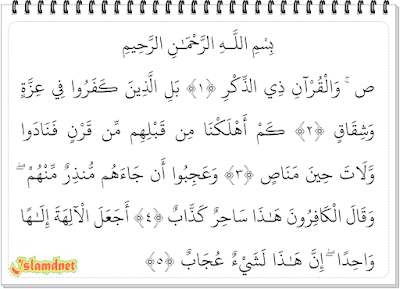 بِسْمِ اللَّـهِ الرَّحْمَـٰنِ الرَّحِيمِ
ص ۚ وَالْقُرْآنِ ذِي الذِّكْرِ ﴿١﴾ بَلِ الَّذِينَ كَفَرُوا فِي عِزَّةٍ
وَشِقَاقٍ ﴿٢﴾ كَمْ أَهْلَكْنَا مِن قَبْلِهِم مِّن قَرْنٍ فَنَادَوا
وَّلَاتَ حِينَ مَنَاصٍ ﴿٣﴾ وَعَجِبُوا أَن جَاءَهُم مُّنذِرٌ مِّنْهُمْ ۖ
وَقَالَ الْكَافِرُونَ هَـٰذَا سَاحِرٌ كَذَّابٌ ﴿٤﴾ أَجَعَلَ الْآلِهَةَ إِلَـٰهًا
وَاحِدًا ۖ إِنَّ هَـٰذَا لَشَيْءٌ عُجَابٌ ﴿٥﴾
islamdnet